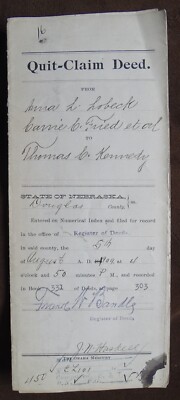 16
Quit-Claim Deed.
FROM
Emma L. Lobeck
Carrie C. Fried et al
TO
Thomas C. Kennedy
STATE OF NEBRASKA,
Douglas County
Entered on Numerical Index and filed for record
in the office of Register of Deeds
in said county, the 5th day
of August A. D. at 4
o'clock and 50 minutes P M., and recorded
in Book 331 of Deeds page 303
Frank W. Bandle
Register of Deeds